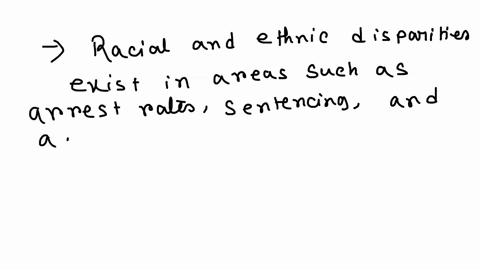 → Racial and ethnic disparities
exist in areas such as
arrest rates, sentencing, and
a.